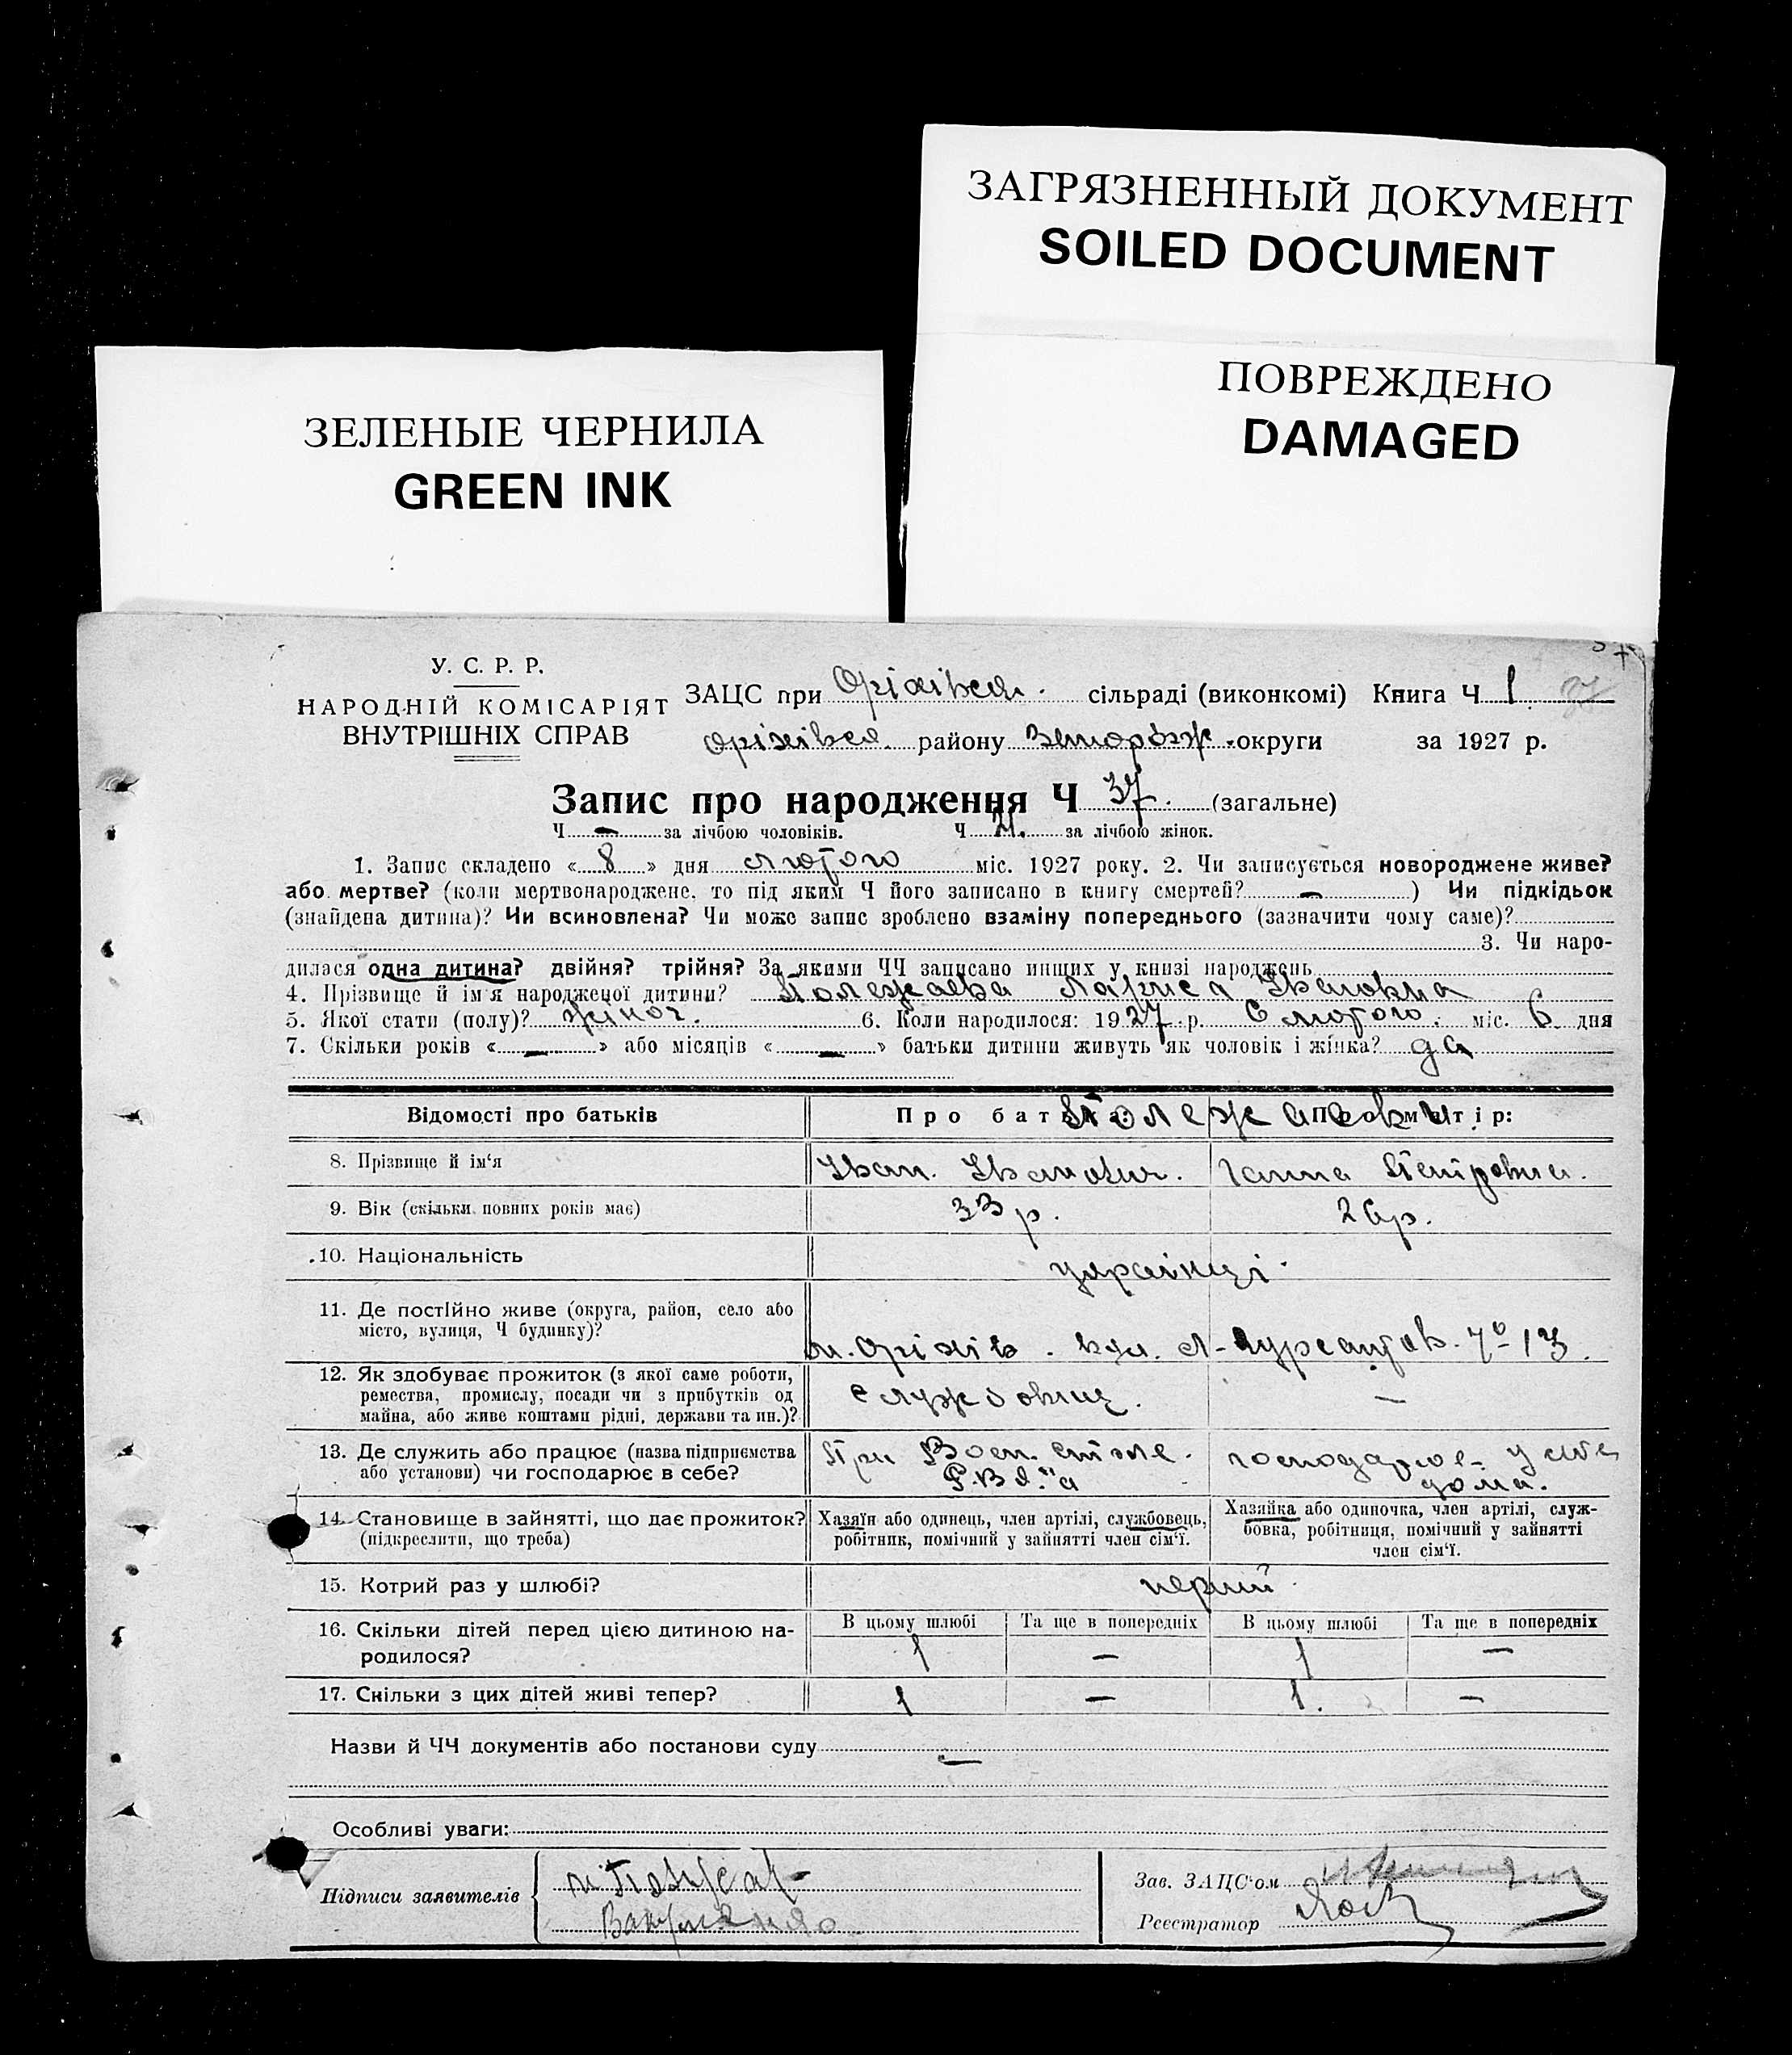 ЗАГРЯЗНЕННЫЙ ДОКУМЕНТ
SOILED DOCUMENT
ПОВРЕЖДЕНО
DAMAGED
ЗЕЛЕНЫЕ ЧЕРНИЛА
GREEN INK
У. С. Р. Р.
НАРОДНІЙ КОМІСАРІЯТ
ВНУТРІШНІХ СПРАВ
ЗАЦС при Оріхівск. сільраді (виконкомі) Книга Ч 1 37
Оріхівск району Запоріж. округи за 1927 р.
Запис про народження Ч 37. (загальне)
Ч — за лічбою чоловіків. Ч 21. за лічбою жінок.
1. Запис складено « 8 » дня лютого міс. 1927 року. 2. Чи записується новороджене живе?
або мертве? (коли мертвонароджене, то під яким Ч його записано в книгу смертей? — ) Чи підкідьок
(знайдена дитина)? Чи всиновлена? Чи може запис зроблено взаміну попереднього (зазначити чому саме)?
3. Чи наро-
дилася одна дитина? двійня? трійня? За якими ЧЧ записано инших у книзі народжень
4. Прізвище й ім'я народженої дитини? Полежаева Лариса Ивановна
5. Якої стати (полу)? жіноч. 6. Коли народилося: 1927 р. 6 лютого. міс. 6 дня
7. Скільки років « — » або місяців « — » батьки дитини живуть як чоловік і жінка? да
Відомості про батьків Про батька: Про матір:
Полежаеви.
8. Прізвище й ім'я Иван. Иванович. Ганна Петровна.
9. Вік (скільки повних років має) 33 р. 26 р.
10. Національність українці.
11. Де постійно живе (округа, район, село або
місто, вулиця, Ч будинку)? м. Оріхів. вул. Л-Курсантов. № 13.
12. Як здобуває прожиток (з якої саме роботи,
ремества, промислу, посади чи з прибутків од
майна, або живе коштами рідні, держави та ин.)? службовец. —
13. Де служить або працює (назва підприємства При Воен. столе. господарює у себе
або установи) чи господарює в себе? Р.В.К"а дома.
14. Становище в зайнятті, що дає прожиток? Хазяїн або одинець, член артілі, службовець, Хазяйка або одиночка, член артілі, служ-
(підкреслити, що треба) робітник, помічний у зайнятті член сім'ї. бовка, робітниця, помічний у зайнятті
член сім'ї.
15. Котрий раз у шлюбі? перший.
В цьому шлюбі Та ще в попередніх В цьому шлюбі Та ще в попередніх
16. Скільки дітей перед цією дитиною на-
родилося? 1 — 1 —
17. Скільки з цих дітей живі тепер? 1 — 1. —
Назви й ЧЧ документів або постанови суду —
Особливі уваги:
Підписи заявителів
Зав. ЗАЦС'ом
Реєстратор